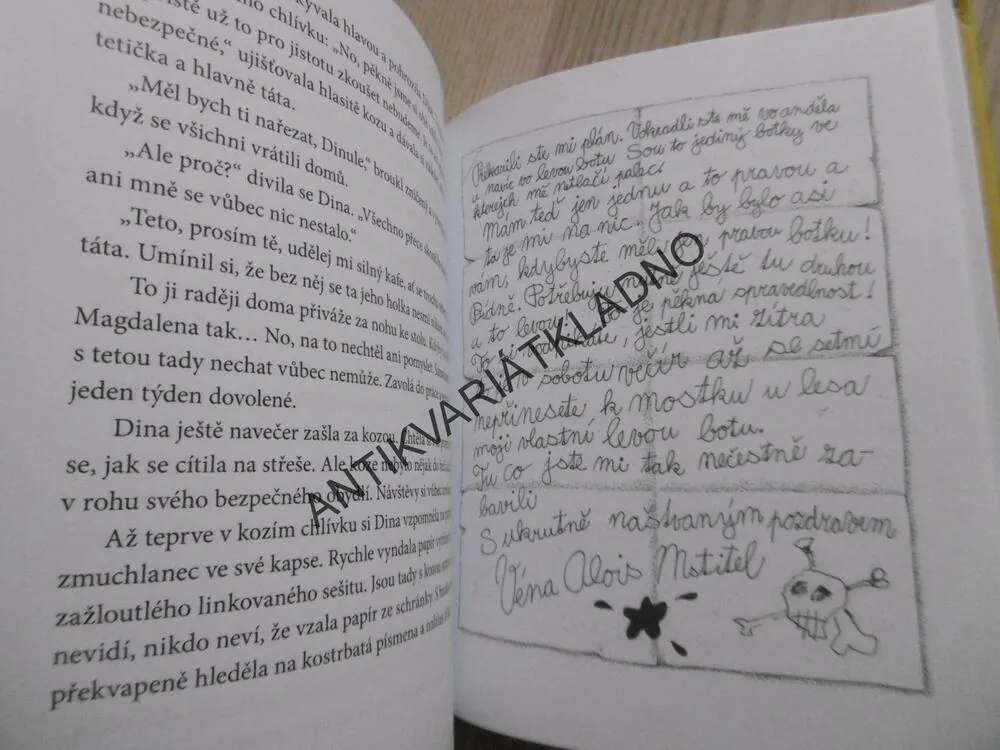 kývala hlavou a pohrozila
už to pro jistotu zkoušet nebudeme.
chlívku: „No, pěkně jsme si
nebezpečné,“ ujišťovala hlasitě kozu a dávala si
tetička a hlavně táta.
„Měl bych ti nařezat, Dinule,“ broukl zničený a
když se všichni vrátili domů.
„Ale proč?“ divila se Dina. „Všechno přece
ani mně se vůbec nic nestalo.“
„Teto, prosím tě, udělej mi silný kafe, ať se trochu
táta. Umínil si, že bez něj se ta jeho holka nesmí
To ji raději doma přiváže za nohu ke stolu. Kdyby
Magdalena tak… No, na to nechtěl ani pomyslet.
s tetou tady nechat vůbec nemůže. Zavolá do práce a
jeden týden dovolené.
Dina ještě navečer zašla za kozou. Chtěla
se, jak se cítila na střeše. Ale koze nebylo nějak do
v rohu svého bezpečného obydlí. Návštěvy si vůbec
Až teprve v kozím chlívku si Dina vzpomněla na
zmuchlanec ve své kapse. Rychle vyndala papír
zažloutlého linkovaného sešitu. Jsou tady s kozou
nevidí, nikdo neví, že vzala papír ze schránky. S
překvapeně hleděla na kostrbatá písmena a nahlas
Překazili ste mi plán. Vokradli ste mě vo anděla
a navíc vo levou botu Sou to jediný botky ve
kterejch mě netlačí palec.
Mám teď jen jednu a to pravou a
ta je mi na nic. Jak by bylo asi
vám, kdybyste měli jen pravou botku!
Bídně. Potřebuju nutně ještě tu druhou
a to levou. To je pěkná spravedlnost!
To si vodpykáte, jestli mi zítra
je v sobotu večír až se setmí
nepřinesete k mostku u lesa
moji vlastní levou botu.
Tu co jste mi tak nečestně za-
bavili
S ukrutně naštvaným pozdravem
Véna Alois Mstitel
ANTIKVARIÁTKLADNO